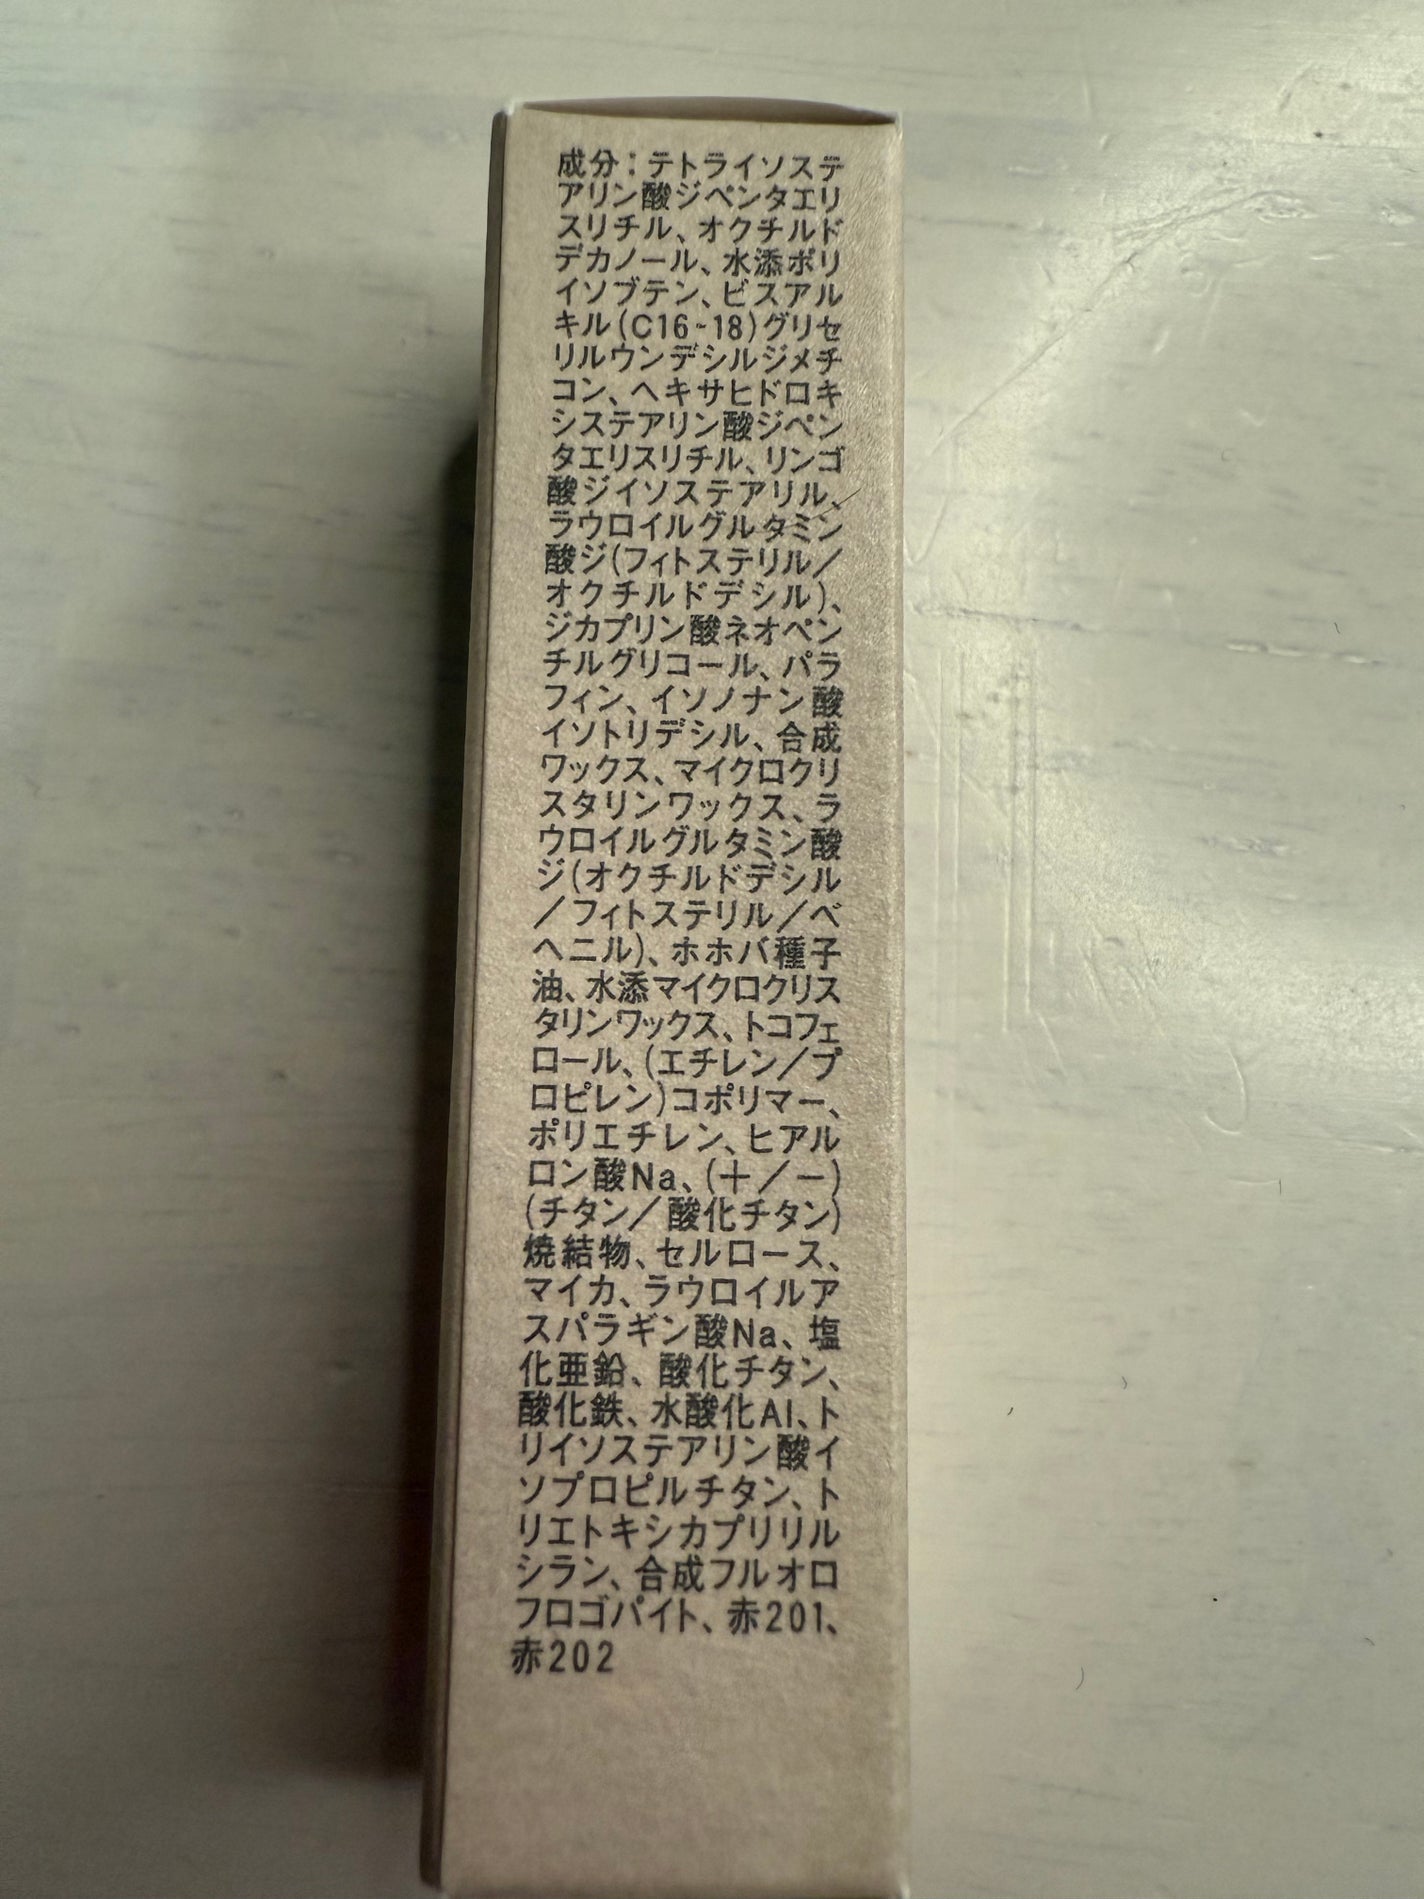 成分：テトライソステ
アリン酸ジペンタエリ
スリチル、オクチルド
デカノール、水添ポリ
イソブテン、ビスアル
キル(C16-18)グリセ
リルウンデシルジメチ
コン、ヘキサヒドロキ
システアリン酸ジペン
タエリスリチル、リンゴ
酸ジイソステアリル、
ラウロイルグルタミン
酸ジ(フィトステリル／
オクチルドデシル)、
ジカプリン酸ネオペン
チルグリコール、パラ
フィン、イソノナン酸
イソトリデシル、合成
ワックス、マイクロクリ
スタリンワックス、ラ
ウロイルグルタミン酸
ジ(オクチルドデシル
／フィトステリル／ベ
ヘニル)、ホホバ種子
油、水添マイクロクリス
タリンワックス、トコフェ
ロール、(エチレン／プ
ロピレン)コポリマー、
ポリエチレン、ヒアル
ロン酸Na、(＋／－)
(チタン／酸化チタン)
焼結物、セルロース、
マイカ、ラウロイルア
スパラギン酸Na、塩
化亜鉛、酸化チタン、
酸化鉄、水酸化Al、ト
リイソステアリン酸イ
ソプロピルチタン、ト
リエトキシカプリリル
シラン、合成フルオロ
フロゴパイト、赤201、
赤202